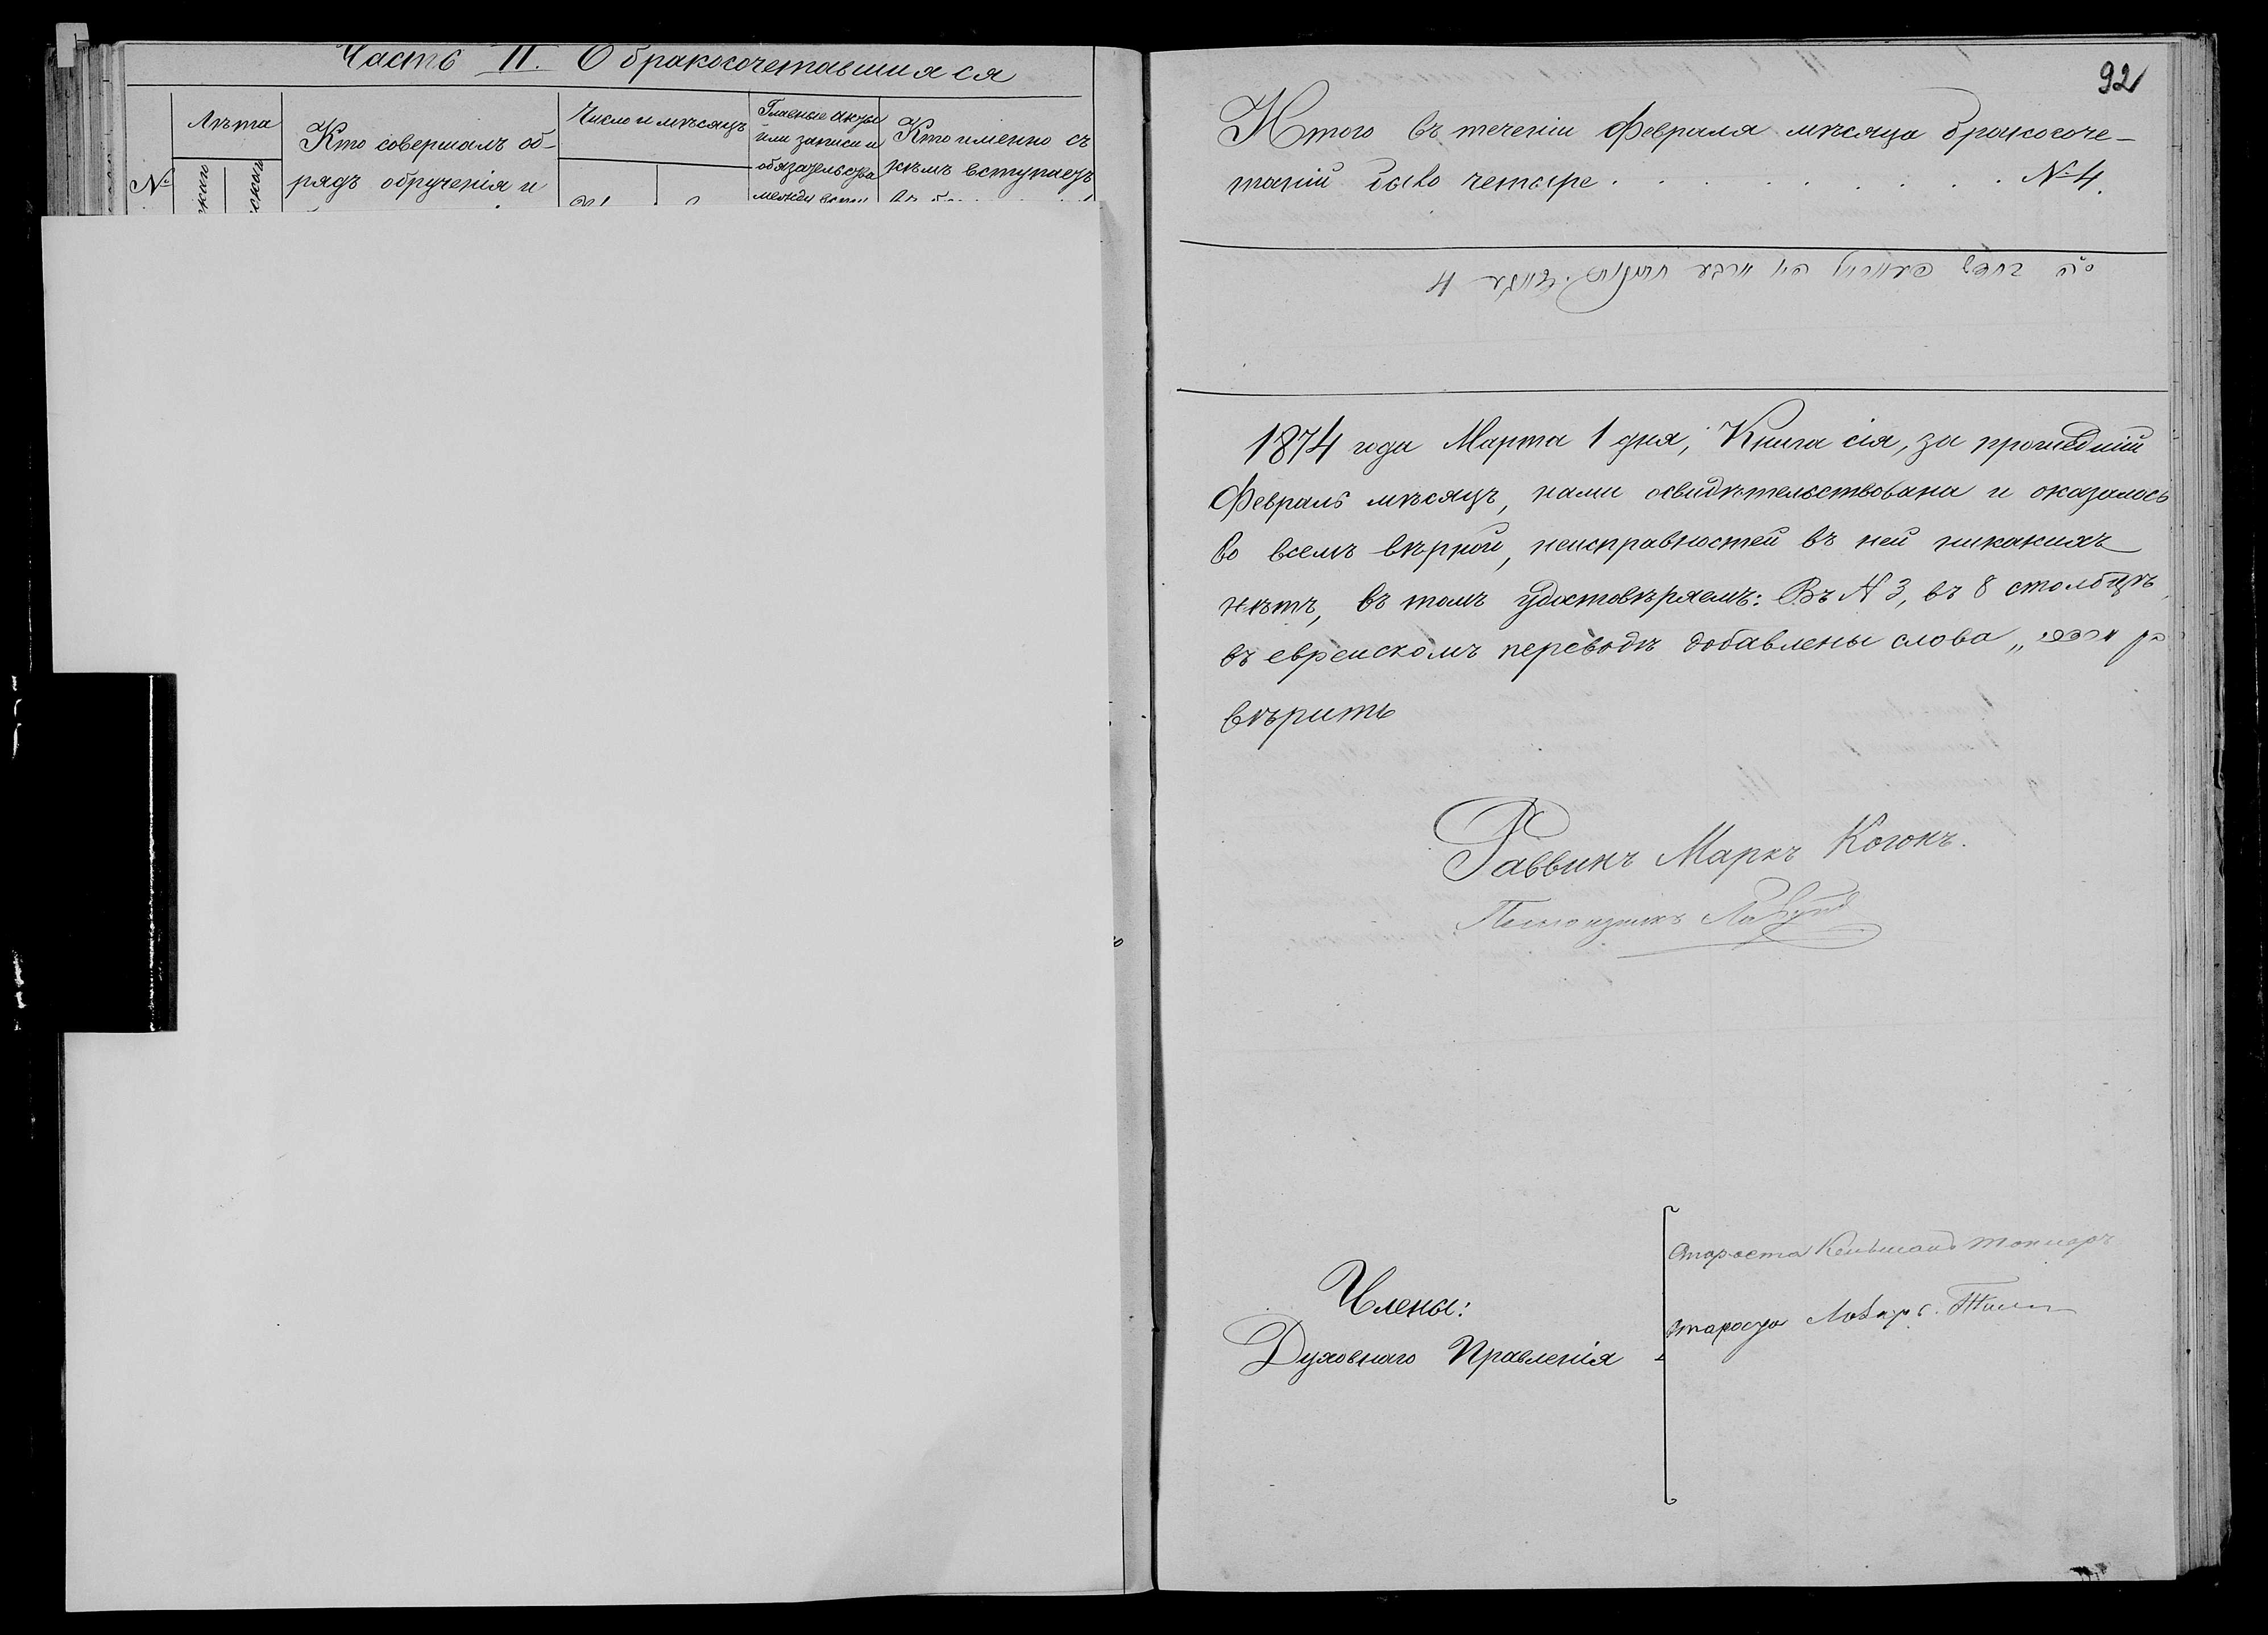 Часть II. О бракосочетавшихся
№
Лѣта
Кто совершалъ об-
рядъ обрученія и
Число и мѣсяцъ
Главные акты
или записи и
обязательства
между всту
Кто именно съ
кѣмъ вступаетъ
92
Итого въ теченіи Февраля мѣсяца бракосоче-
таній было четыре . . . . . . . . . № 4.
4
1874 года Марта 1 дня, Книга сія, за прошедшій
Февраль мѣсяцъ, нами освидѣтельствована и оказалось
во всемъ вѣрной, неисправностей въ ней никакихъ
нѣтъ, въ томъ удостовѣряемъ: Въ № 3, въ 8 столбцѣ
въ еврейскомъ переводѣ добавлены слова „
вѣрить
Раввинъ Маркъ Когонъ.
Помощникъ
Члены:
Духовнаго Правленія
Староста
Староста